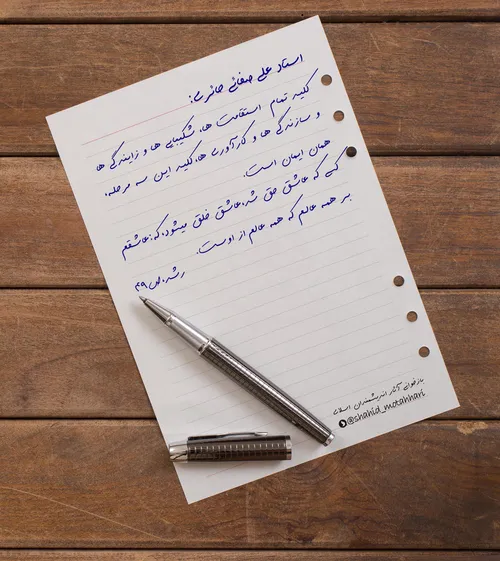 استاد علی صفائی حائری:
کلید تمام استقامت ها، شکیبایی ها و زایندگی ها
و سازندگی ها و کارآوری ها، کلید این سه مرحله،
همان ایمان است.
کسی که عاشق حق شد، عاشق خلق میشود، که: عاشقم
بر همه عالم که همه عالم از اوست.
رشد، ص ۴۹
بازخوانی آثار اندیشمندان اسلامی
@shahid_motahhari